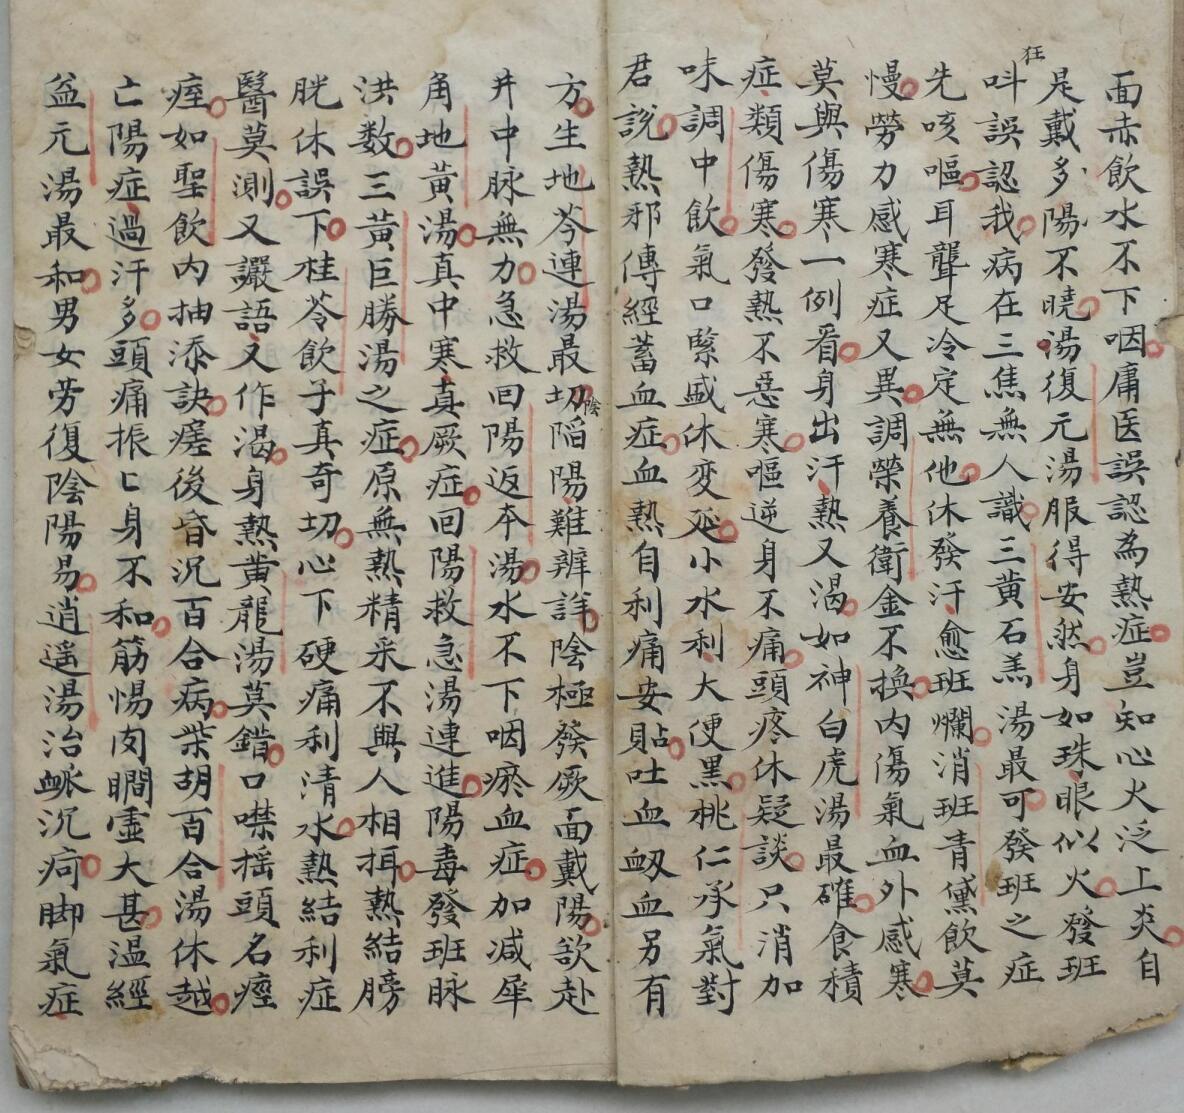 面赤飲水不下咽庸医誤認為熱症豈知心火泛上炎自
是戴多陽不曉湯復元湯服得安然身如珠眼似火發班
狂
呌誤認我病在三焦無人識三黄石羔湯最可發班之症
先咳嘔耳聾足冷定無他休發汗愈班爛消班青黛飲莫
慢勞力感寒症又異調榮養衛金不換内傷氣血外感寒
莫與傷寒一例看身出汗熱又渴如神白虎湯最確食積
症類傷寒發熱不惡寒嘔逆身不痛頭疼休疑談只消加
味調中飲氣口緊盛休変延小水利大便黒桃仁承氣對
君説熱邪傳經蓄血症血熱自利痛安貼吐血衂血另有
方生地芩連湯最切陷陽難辨詳陰極發厥面戴陽欲赴
陰
井中脉無力急救回陽返夲湯水不下咽瘀血症加减犀
角地黄湯真中寒真厥症回陽救急湯連進陽毒發班脉
洪数三黄巨勝湯之症原無熱精采不與人相揖熱結膀
胱休誤下桂苓飲子真奇切心下硬痛利清水熱結利症
醫莫測又讝語又作渴身熱黄龍湯莫錯口噤揺頭名痙
痓如聖飲内抽添訣瘥後昏沉百合病柴胡百合湯休越
亡陽症過汗多頭痛振匕身不和筋惕肉瞤虛大甚温經
益元湯最和男女劳復陰陽易逍遥湯治衇沉疴脚氣症